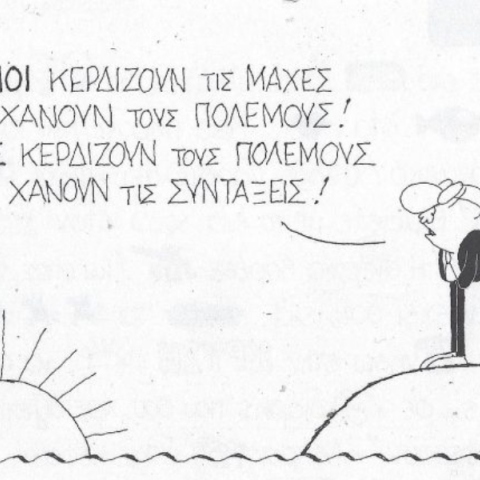 ΚΕΡΔΙΖΟΥΝ ΤΙΣ ΜΑΧΕΣ
ΧΑΝΟΥΝ ΤΟΥΣ ΠΟΛΕΜΟΥΣ!
ΚΕΡΔΙΖΟΥΝ ΤΟΥΣ ΠΟΛΕΜΟΥΣ
ΧΑΝΟΥΝ ΤΙΣ ΣΥΝΤΑΞΕΙΣ!